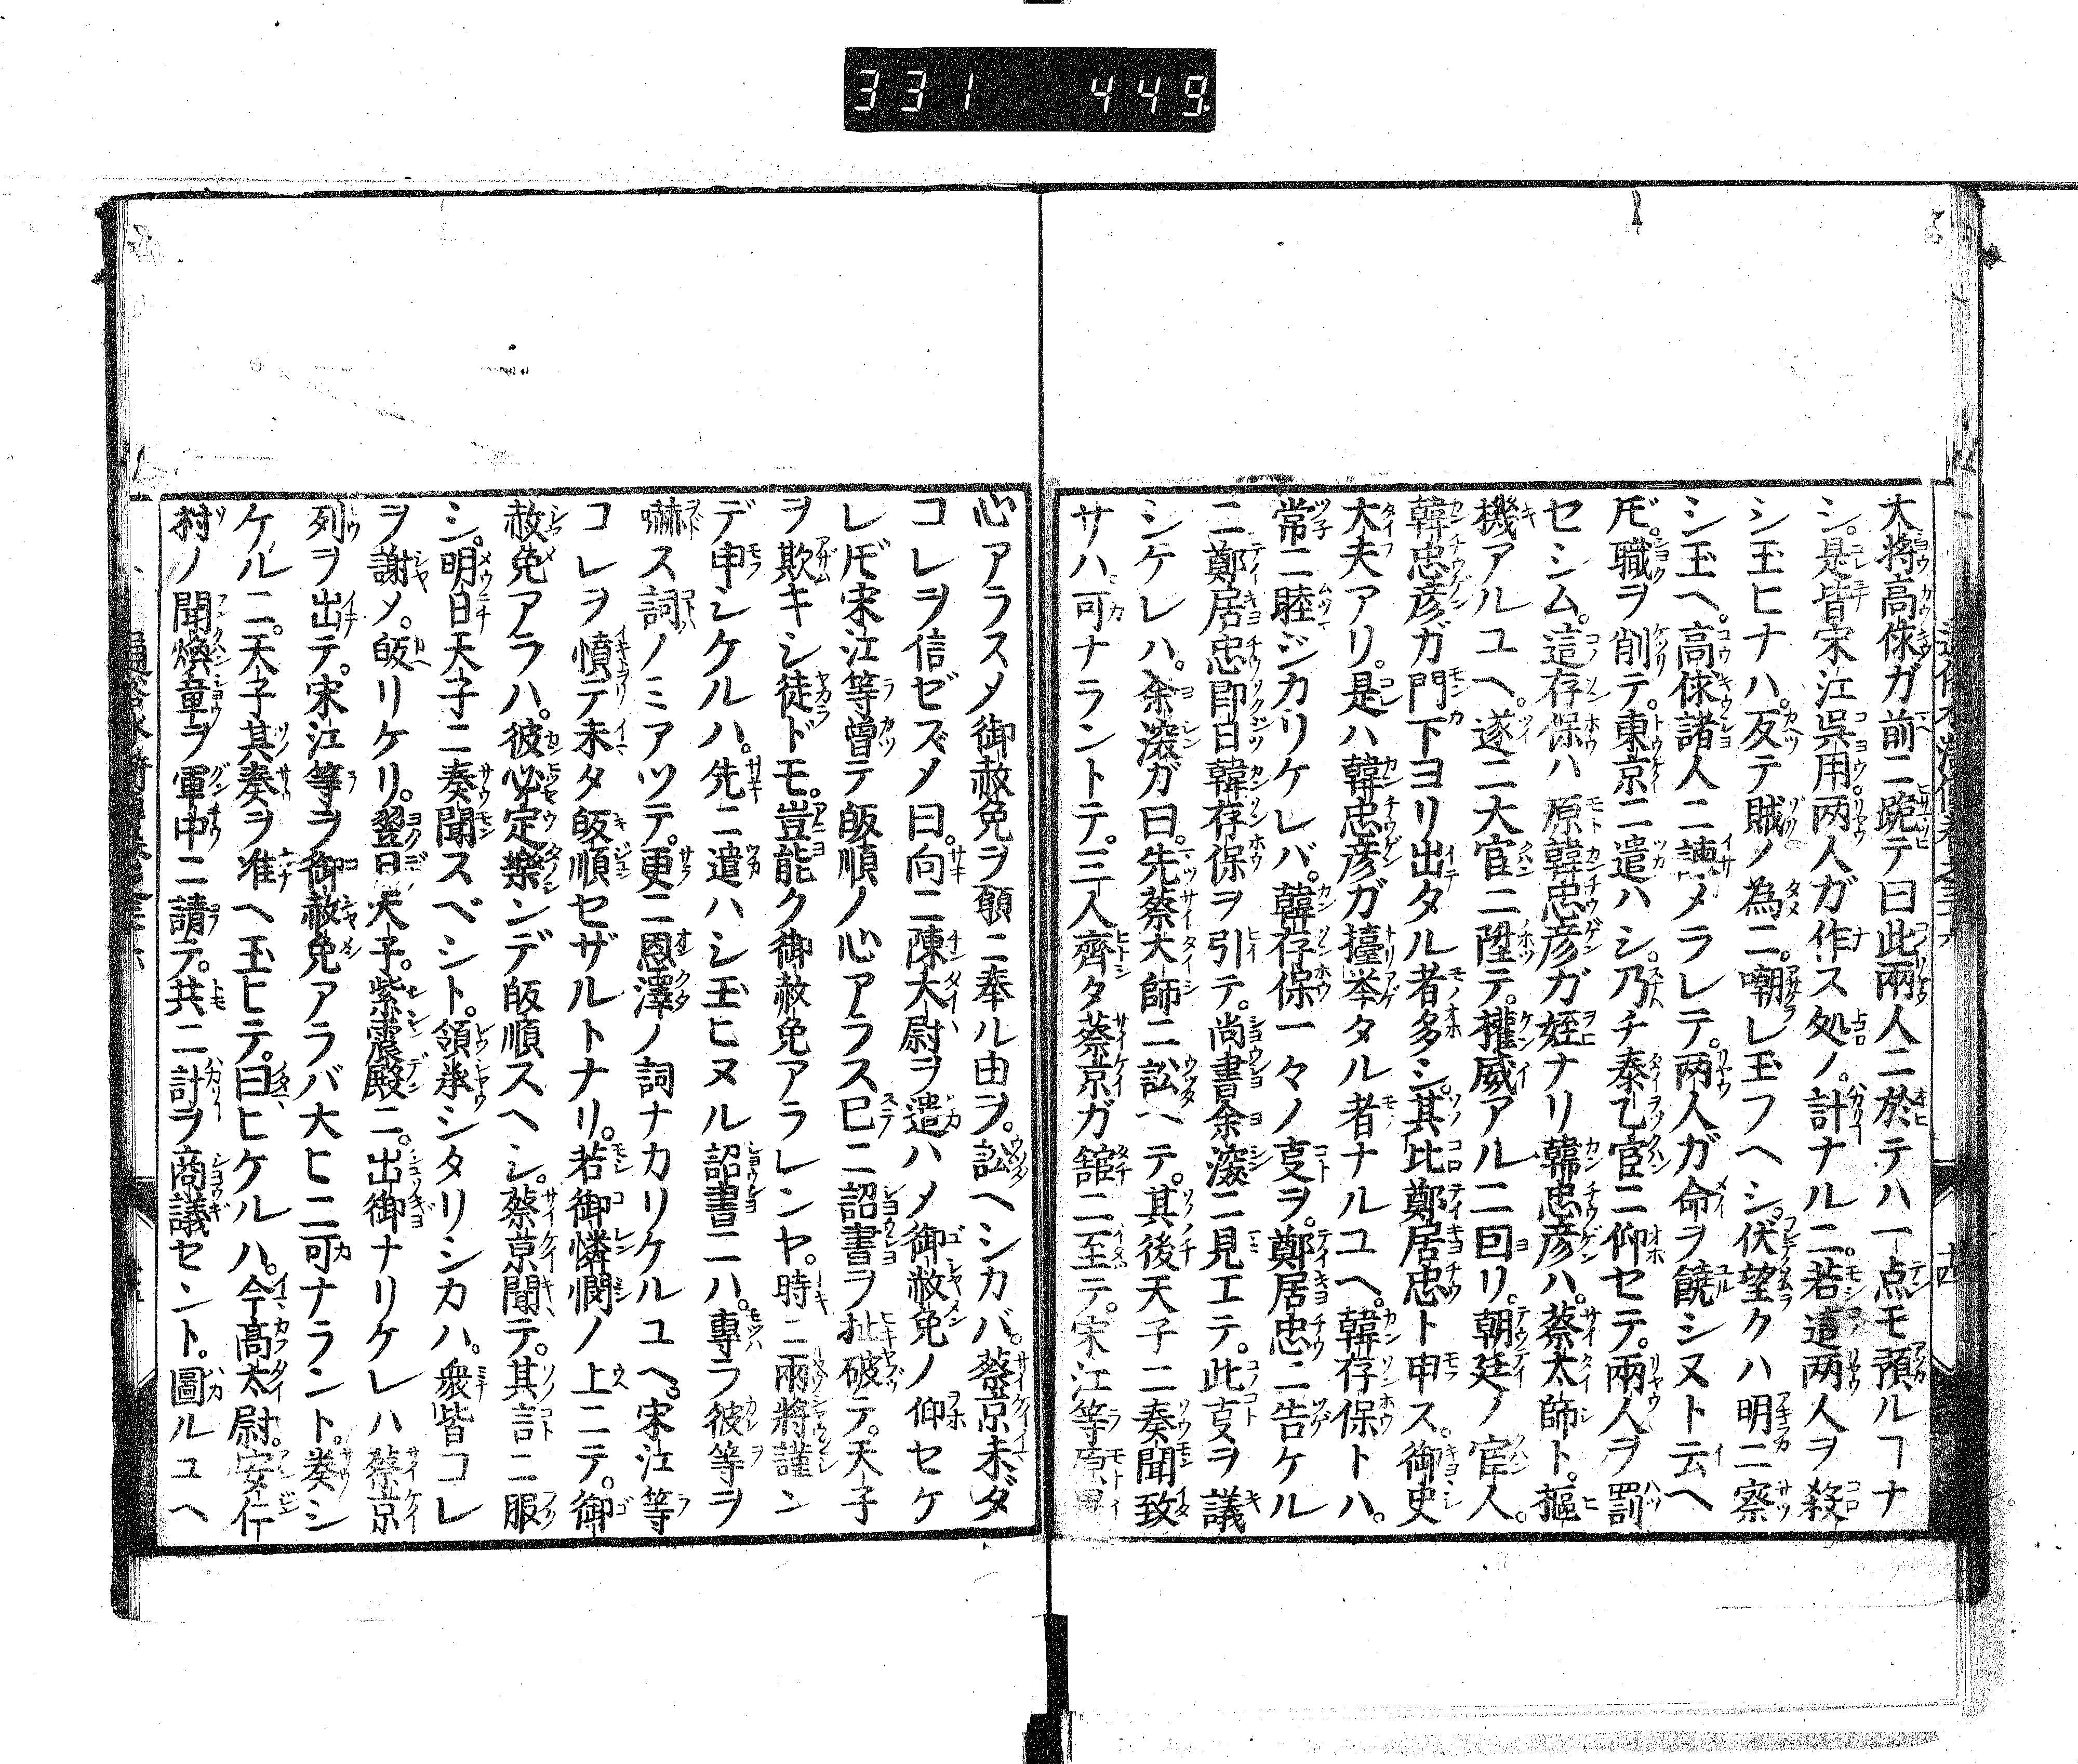 331 449
大將高俅ガ前ニ跪テ曰此兩人ニ於テハ一点モ預ルヿナ
シ。是皆宋江呉用。两人ガ作ス処ノ。計ナルニ。若這两人ヲ殺
シ玉ヒナハ。反テ賊ノ為ニ。嘲レ玉フヘシ。伏望クハ明ニ察
シ玉ヘ。高俅諸人ニ諫メラレテ。两人ガ命ヲ饒シヌト云ヘ
𪜈。職ヲ削テ。東京ニ遣ハシ。乃チ泰乙宮ニ仰セテ。兩人ヲ罰
セシム。這存保ハ原韓忠彦ガ姪ナリ韓忠彦ハ。蔡太師ト。摳
機アルユヘ。遂ニ大官ニ陞テ。權威アルニ回リ。朝廷ノ官人。
韓忠彦ガ門下ヨリ出タル者多シ。其比鄭居忠ト申ス。御史
大夫アリ。是ハ韓忠彦ガ擡举タル者ナルユヘ。韓存保トハ。
常ニ睦ジカリケレバ。韓存保一々ノ㕝ヲ。鄭居忠ニ告ケル
ニ鄭居忠即日韓存保ヲ引テ。尚書余深ニ見エテ。此㕝ヲ議
シケレハ。余深ガ曰。先蔡太師ニ訟ヘテ。其後天子ニ奏聞致
サハ可ナラントテ。三人齊タ蔡京ガ舘ニ至テ。宋江等原異
心アラスメ御赦免ヲ願ニ奉ル由ヲ。訟ヘシカバ。蔡京未ダ
コレヲ信ゼズメ曰。向ニ陳太尉ヲ遣ハメ御赦免ノ仰セケ
レ𪜈宋江等曽テ皈順ノ心アラス已ニ詔書ヲ扯破テ。天子
ヲ欺キシ徒ドモ。豈能ク御赦免アラレンヤ。時ニ兩將謹ン
デ申シケルハ。先ニ遣ハシ玉ヒヌル詔書ニハ。專ラ彼等ヲ
嚇ス詞ノミアツテ。更ニ恩澤ノ詞ナカリケルユヘ。宋江等
コレヲ憤テ未タ皈順セザルトナリ。若御憐憫ノ上ニテ。御
赦免アラハ。彼必定樂ンデ皈順スヘシ。蔡京聞テ。其言ニ服
シ。明日天子ニ奏聞スベシト。領掌シタリシカハ。衆皆コレ
ヲ謝メ。皈リケリ。翌日天子。紫震殿ニ。出御ナリケレハ蔡京
列ヲ出テ。宋江等ヲ御赦免アラバ大ヒニ可ナラント。奏シ
ケルニ。天子其奏ヲ准ヘ玉ヒテ。曰ヒケルハ。今高太尉。安仁
村ノ聞煥章ヲ軍中ニ請テ。共ニ計ヲ商議セント。圖ルユヘ